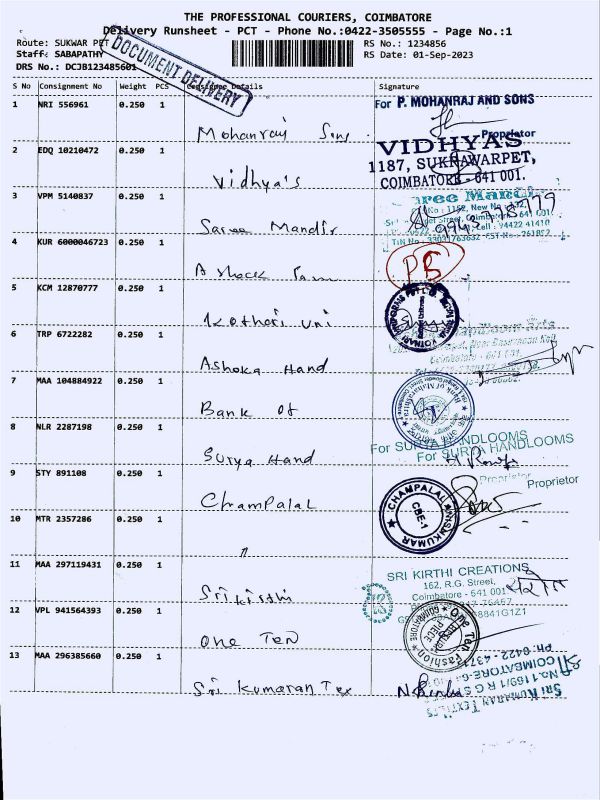 THE PROFESSIONAL COURIERS, COIMBATORE
Delivery Runsheet - PCT - Phone No.:0422-3505555 - Page No.:1
Route: SUKWAR PET
RS No.: 1234856
Staff: SABAPATHY
RS Date: 01-Sep-2023
DRS No.: DCJB123485601
DOCUMENT DELIVERY
S No Consignment No Weight PCS Consignee Details Signature
1 NRI 556961 0.250 1 Mohanraj Sons
For P. MOHANRAJ AND SONS
Proprietor
2 EDQ 10210472 0.250 1 Vidhya's
VIDHYAS
1187, SUKRAWARPET,
COIMBATORE - 641 001.
3 VPM 5140837 0.250 1 Saree Mandir
4 KUR 6000046723 0.250 1 Ashock
5 KCM 12870777 0.250 1 Kothari uni
6 TRP 6722282 0.250 1 Ashoka Hand
Coimbatore - 641 001.
7 MAA 104884922 0.250 1 Bank of
Bank of Maharashtra
8 NLR 2287198 0.250 1 Surya Hand
For SURYA HANDLOOMS
For SURYA HANDLOOMS
Proprietor
Proprietor
9 STY 891108 0.250 1 Champalal
CHAMPALAL
CBE-1
10 MTR 2357286 0.250 1 "
11 MAA 297119431 0.250 1 Sri kirthi
SRI KIRTHI CREATIONS
162, R.G. Street,
Coimbatore - 641 001
12 VPL 941564393 0.250 1 One Ten
One Ten Fashion
COIMBATORE
13 MAA 296385660 0.250 1 Sri Kumaran Tex
SRI KUMARAN TEXTILES